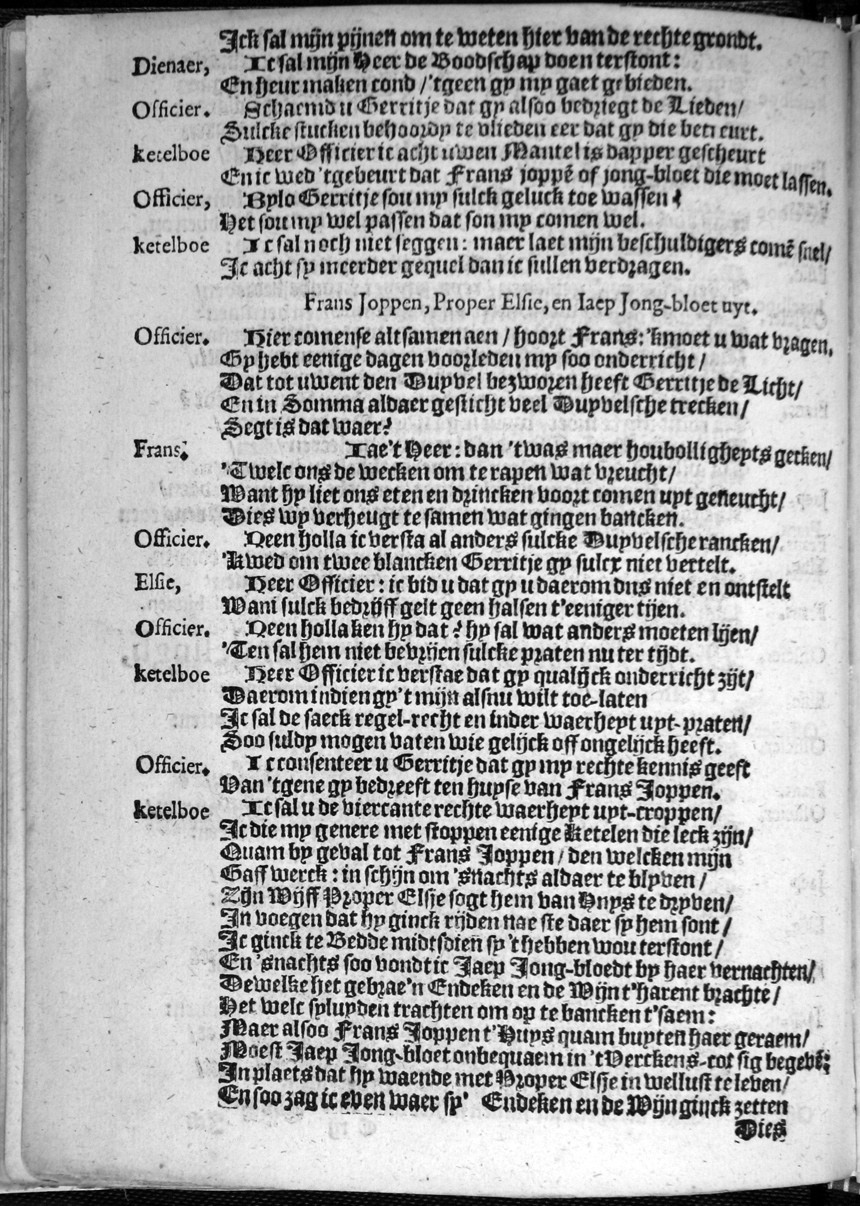 Ick sal mijn pijnen om te weten hier van de rechte grondt.
Dienaer, Ic sal mijn Heer de Boodschap doen terstont:
En heur maken cond / 'tgeen gy my gaet gebieden.
Officier. Schaemd u Gerritje dat gy alsoo bedriegt de Lieden/
Sulcke stucken behoordy te vlieden eer dat gy die beti eurt.
ketelboe Heer Officier ic acht uwen Mantel is dapper gescheurt
En ic wed 'tgebeurt dat Frans joppẽ of jong-bloet die moet lassen.
Officier, Bylo Gerritje sou my sulck geluck toe wassen?
Het sou my wel passen dat son my comen wel.
ketelboe Ic sal noch niet seggen: maer laet mijn beschuldigers comẽ snel/
Ic acht sy meerder gequel dan ic sullen verdragen.
Frans Joppen, Proper Elsie, en Iaep Jong-bloet uyt.
Officier. Hier comense altsamen aen / hoort Frans: 'kmoet u wat vragen,
Gy hebt eenige dagen voorleden my soo onderricht /
Dat tot uwent den Duyvel bezworen heeft Gerritje de Licht/
En in Somma aldaer gesticht veel Duyvelsche trecken/
Segt is dat waer?
Frans. Iae't Heer: dan 'twas maer houbollicheyts gecken/
'Twelc ons de wecken om te rapen wat vreucht/
Want hy liet ons eten en drincken voort comen uyt geneucht/
Dies wy verheugt te samen wat gingen bancken.
Officier. Neen holla ic versta al anders sulcke Duyvelsche rancken/
'Kwed om twee blancken Gerritje gy sulcx niet vertelt.
Elsie, Heer Officier: ic bid u dat gy u daerom dns niet en ontstelt
Wani sulck bedrijff gelt geen halsen t'eeniger tijen.
Officier. Neen holla ken hy dat? hy sal wat anders moeten lijen/
'Ten sal hem niet bevrijen sulcke praten nu ter tijdt.
ketelboe Heer Officier ic verstae dat gy qualijck onderricht zijt/
Daerom indien gy't mijn alsnu wilt toe-laten
Ic sal de saeck regel-recht en inder waerheyt uyt-praten/
Soo suldy mogen vaten wie gelijck off ongelijck heeft.
Officier. Ic consenteer u Gerritje dat gy my rechte kennis geeft
Van 'tgene gy bedreeft ten huyse van Frans Joppen.
ketelboe Ic sal u de viercante rechte waerheyt uyt-croppen/
Ic die my genere met stoppen eenige Ketelen die leck zijn/
Quam by geval tot Frans Joppen / den welcken mijn
Gaff werck: in schijn om 'snachts aldaer te blyven /
Zijn Wijff Proper Elsje sogt hem van Huys te dryven/
In voegen dat hy ginck rijden nae ste daer sy hem sont /
Ic ginck te Bedde midtsdien sy 't hebben wou terstont /
En 'snachts soo vondt ic Jaep Jong-bloedt by haer vernachten/
Dewelke het gebrae'n Endeken en de Wijn t'harent brachte /
Het welc syluyden trachten om op te bancken t'saem:
Maer alsoo Frans Joppen t'Huys quam buyten haer geraem/
Moest Jaep Jong-bloet onbequaem in 't Verckens-cot sig begevẽ:
In plaets dat hy waende met Proper Elsje in wellust te leven/
En soo zag ic even waer sy' Endeken en de Wijn ginck zetten
Dies